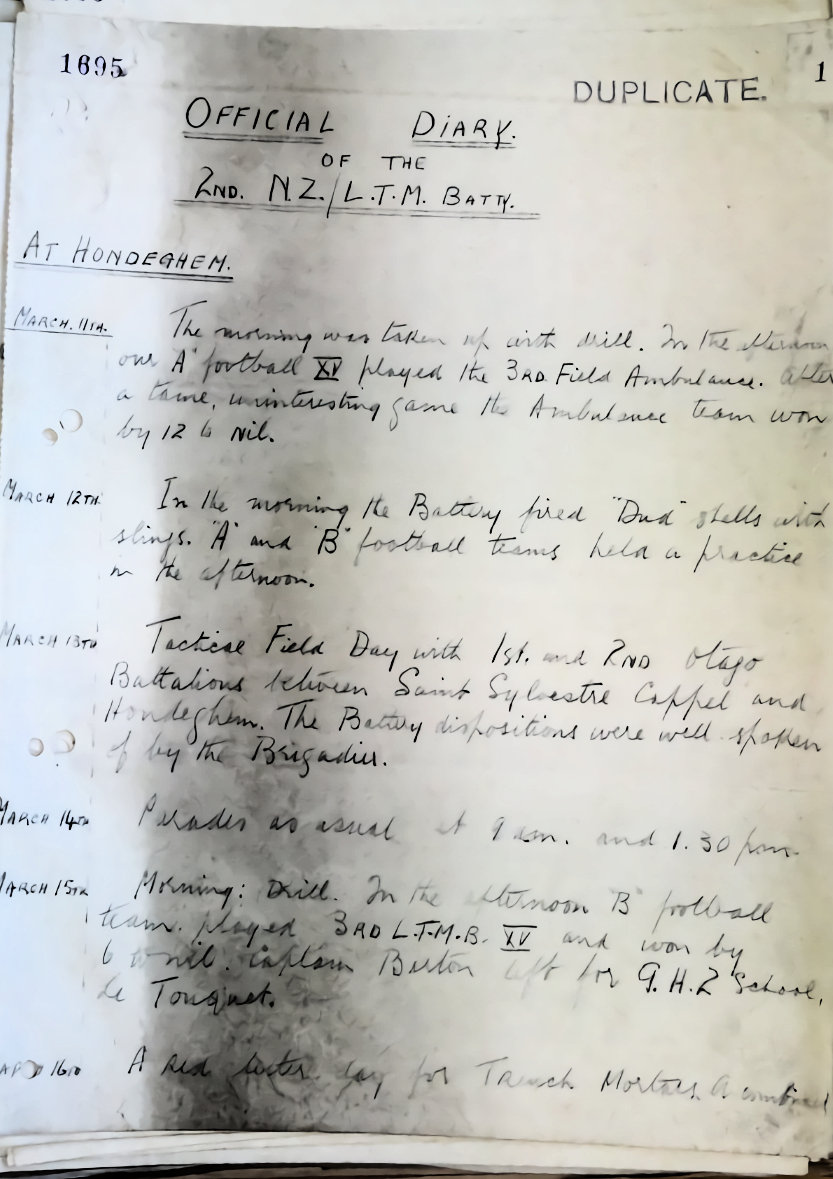 1695
DUPLICATE.
1
OFFICIAL DIARY.
OF THE
2ND. N.Z./L.T.M. BATTY.
AT HONDEGHEM.
MARCH. 11TH. The morning was taken up with drill. In the afternoon
our "A" football XV played the 3RD Field Ambulance. After
a tame, uninteresting game the Ambulance team won
by 12 to Nil.
MARCH 12TH In the morning the Battery fired "Dud" shells with
slings. "A" and "B" football teams held a practice
in the afternoon.
MARCH 13TH Tactical Field Day with 1st. and 2ND Otago
Battalions between Saint Sylvestre Cappel and
Hondeghem. The Battery dispositions were well spoken
of by the Brigadier.
MARCH 14TH Parades as usual at 9 am. and 1.30 pm.
MARCH 15TH Morning: Drill. In the afternoon "B" football
team played 3RD L.T.M.B. XV and won by
6 to nil. Captain left for G.H.Q School,
Le Touquet.
16TH A red letter day for Trench Mortars. A combined